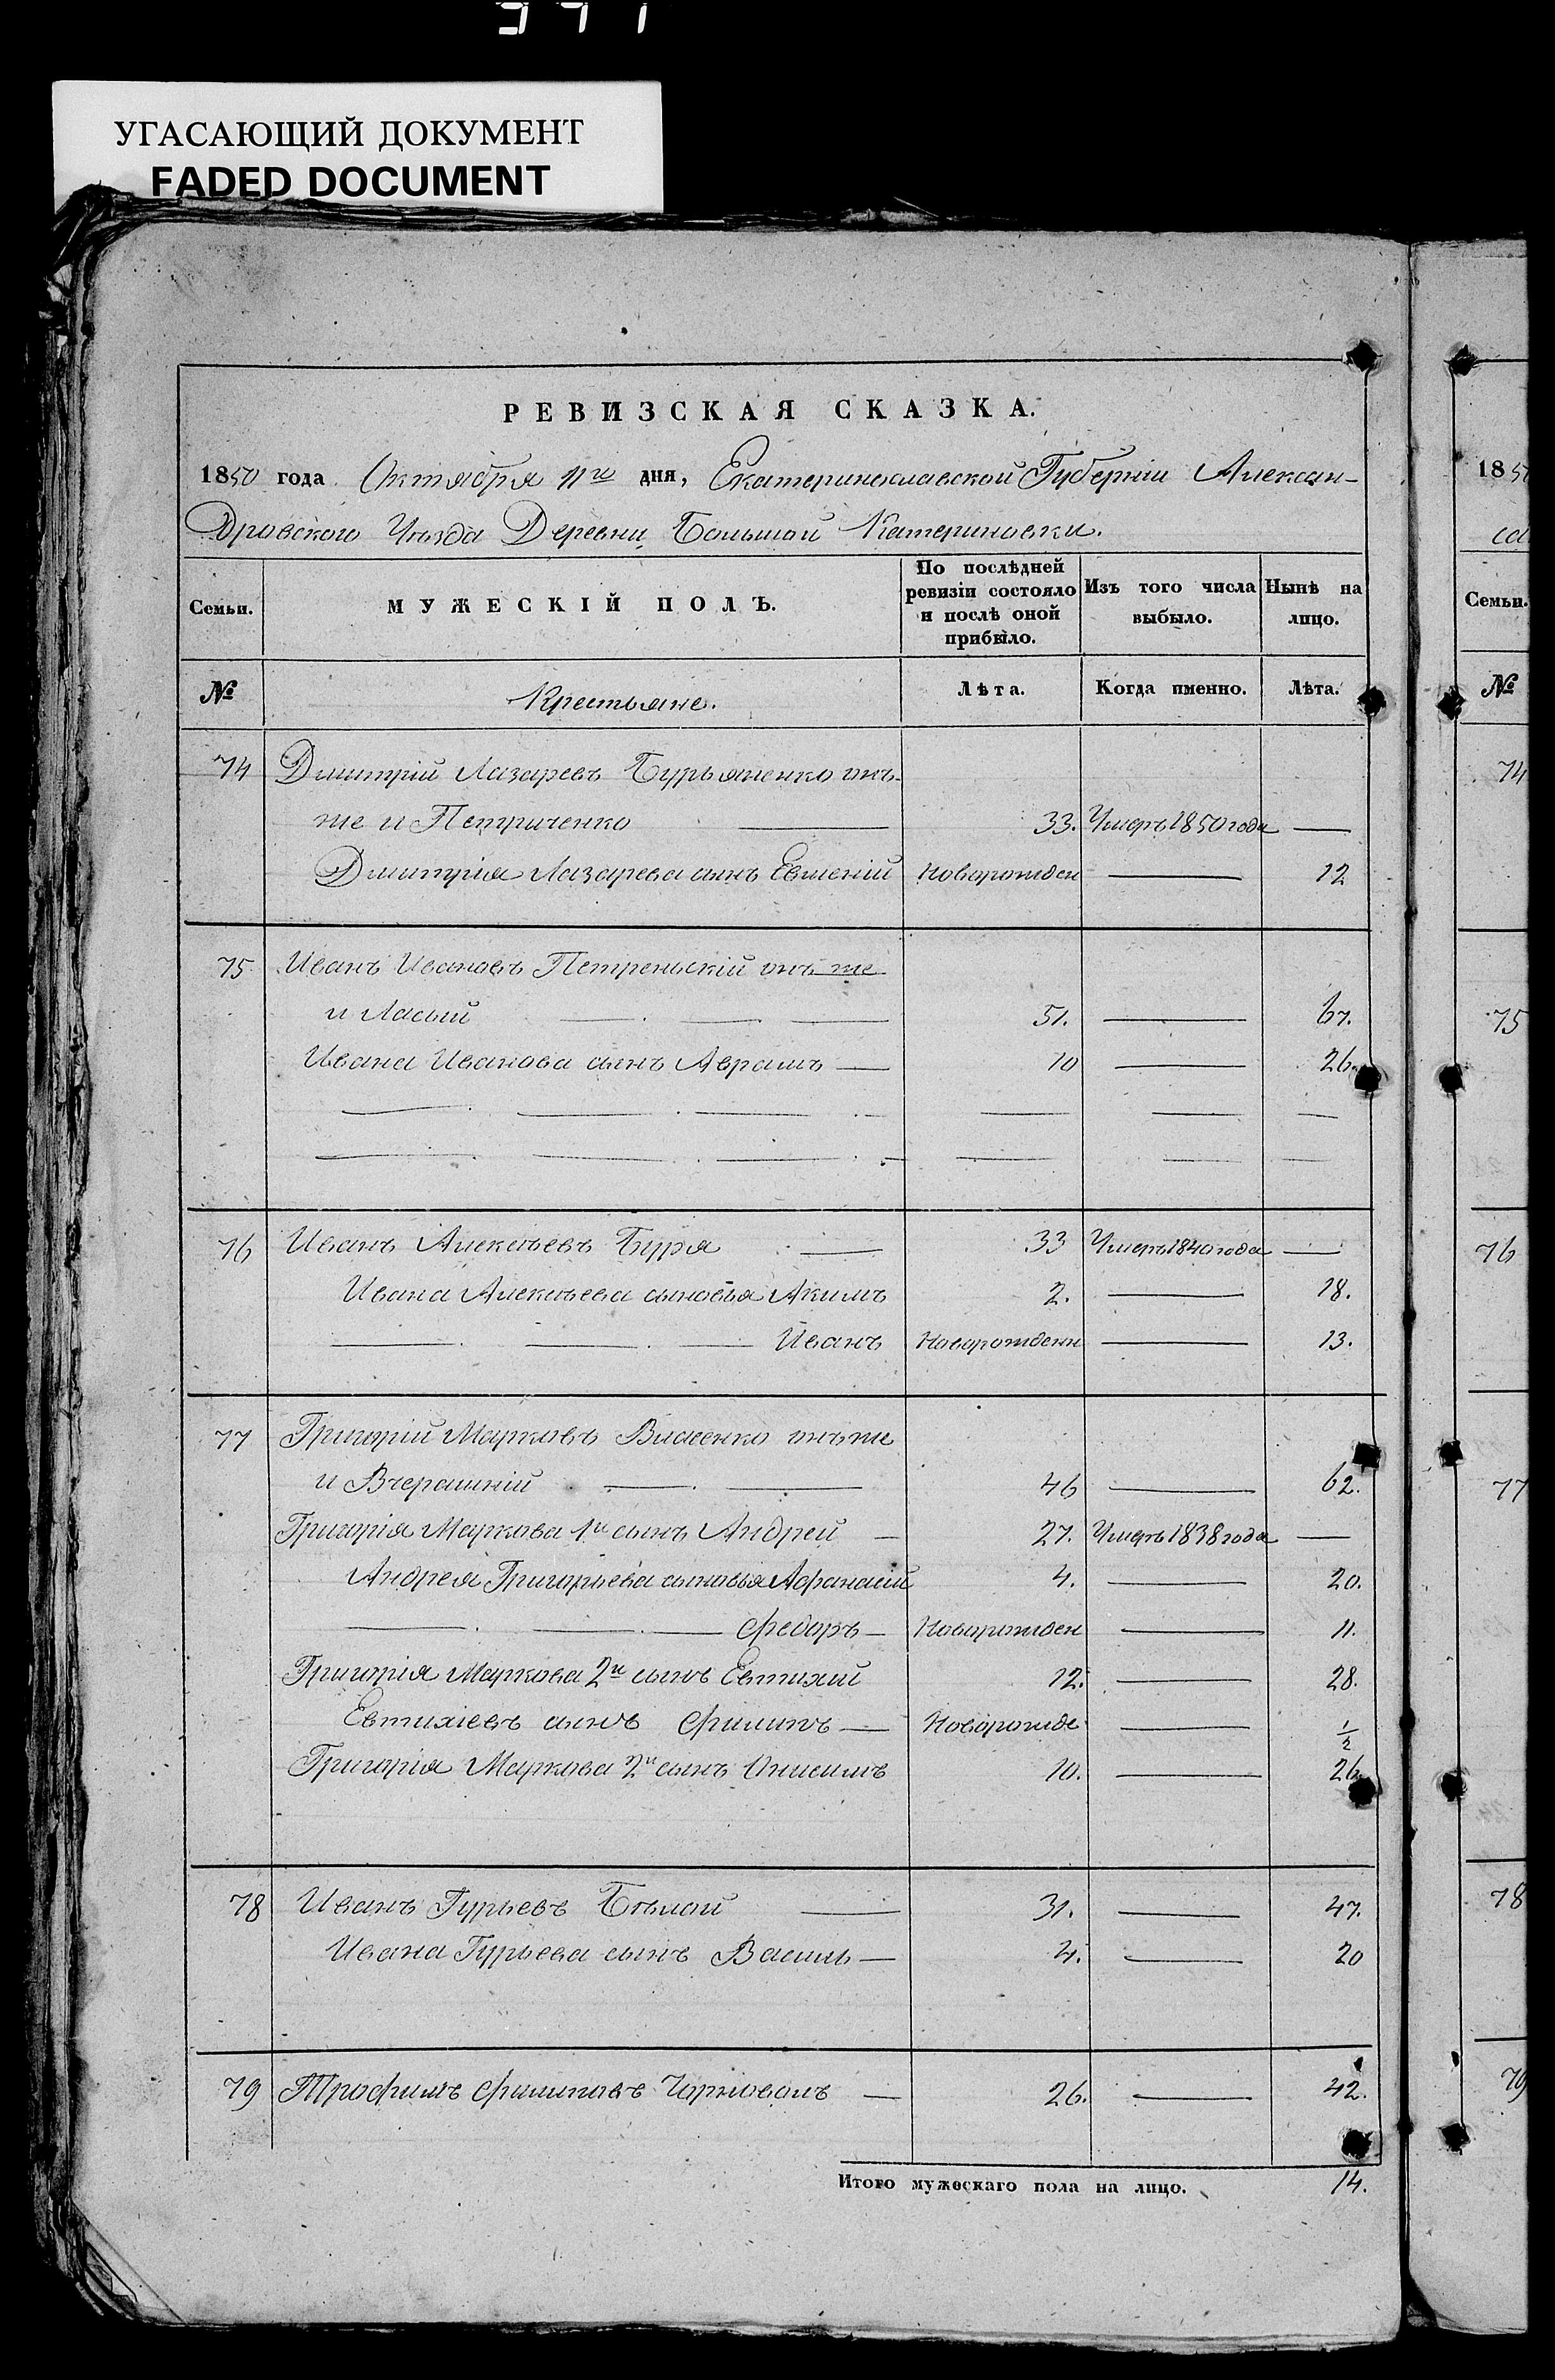 УГАСАЮЩИЙ ДОКУМЕНТ
FADED DOCUMENT
РЕВИЗСКАЯ СКАЗКА.
1850 года Октября 11го дня, Екатеринославской Губерніи Алексан-
дровского Уѣзда Деревни Большой Катериновки.
Семьи. МУЖЕСКІЙ ПОЛЪ. По послѣдней ревизіи состояло и послѣ оной прибыло. Изъ того числа выбыло. Нынѣ на лицо.
№ Крестьяне. Лѣта. Когда именно. Лѣта.
74 Дмитрій Лазаревъ Бурьяненко онъ-
же и Петриченко — 33. Умеръ 1850 года —
Дмитрія Лазарева сынъ Евмений Новорожден — 12
75 Иванъ Ивановъ Петреньскій онъ же
и Ласый — 51. — 67.
Ивана Иванова сынъ Аврамъ — 10 — 26.
76 Иванъ Алексѣевъ Буря — 33 Умеръ 1840 года —
Ивана Алексѣева сыновья Акимъ 2. — 18.
— Иванъ Новорожденн — 13.
77 Григорій Марковъ Власенко онъ же
и Вчерашній — 46 — 62.
Григорія Маркова 1й сынъ Андрей — 27. Умеръ 1838 года —
Андрея Григорьева сыновья Афанасій 4. — 20.
— Федоръ — Новорожден — 11.
Григорія Маркова 2й сынъ Евтихий 12. — 28.
Евтихіевъ сынъ Филипъ — Новорожде — 1/2
Григорія Маркова 2й сынъ Онисимъ 10. — 26
78 Иванъ Гурьевъ Бѣлой — 31. — 47.
Ивана Гурьева сынъ Василь — 4. — 20
79 Трофимъ Филиповъ — 26. — 42.
Итого мужескаго пола на лицо. 14.
1850
Семьи.
№
74
75
76
77
78
79